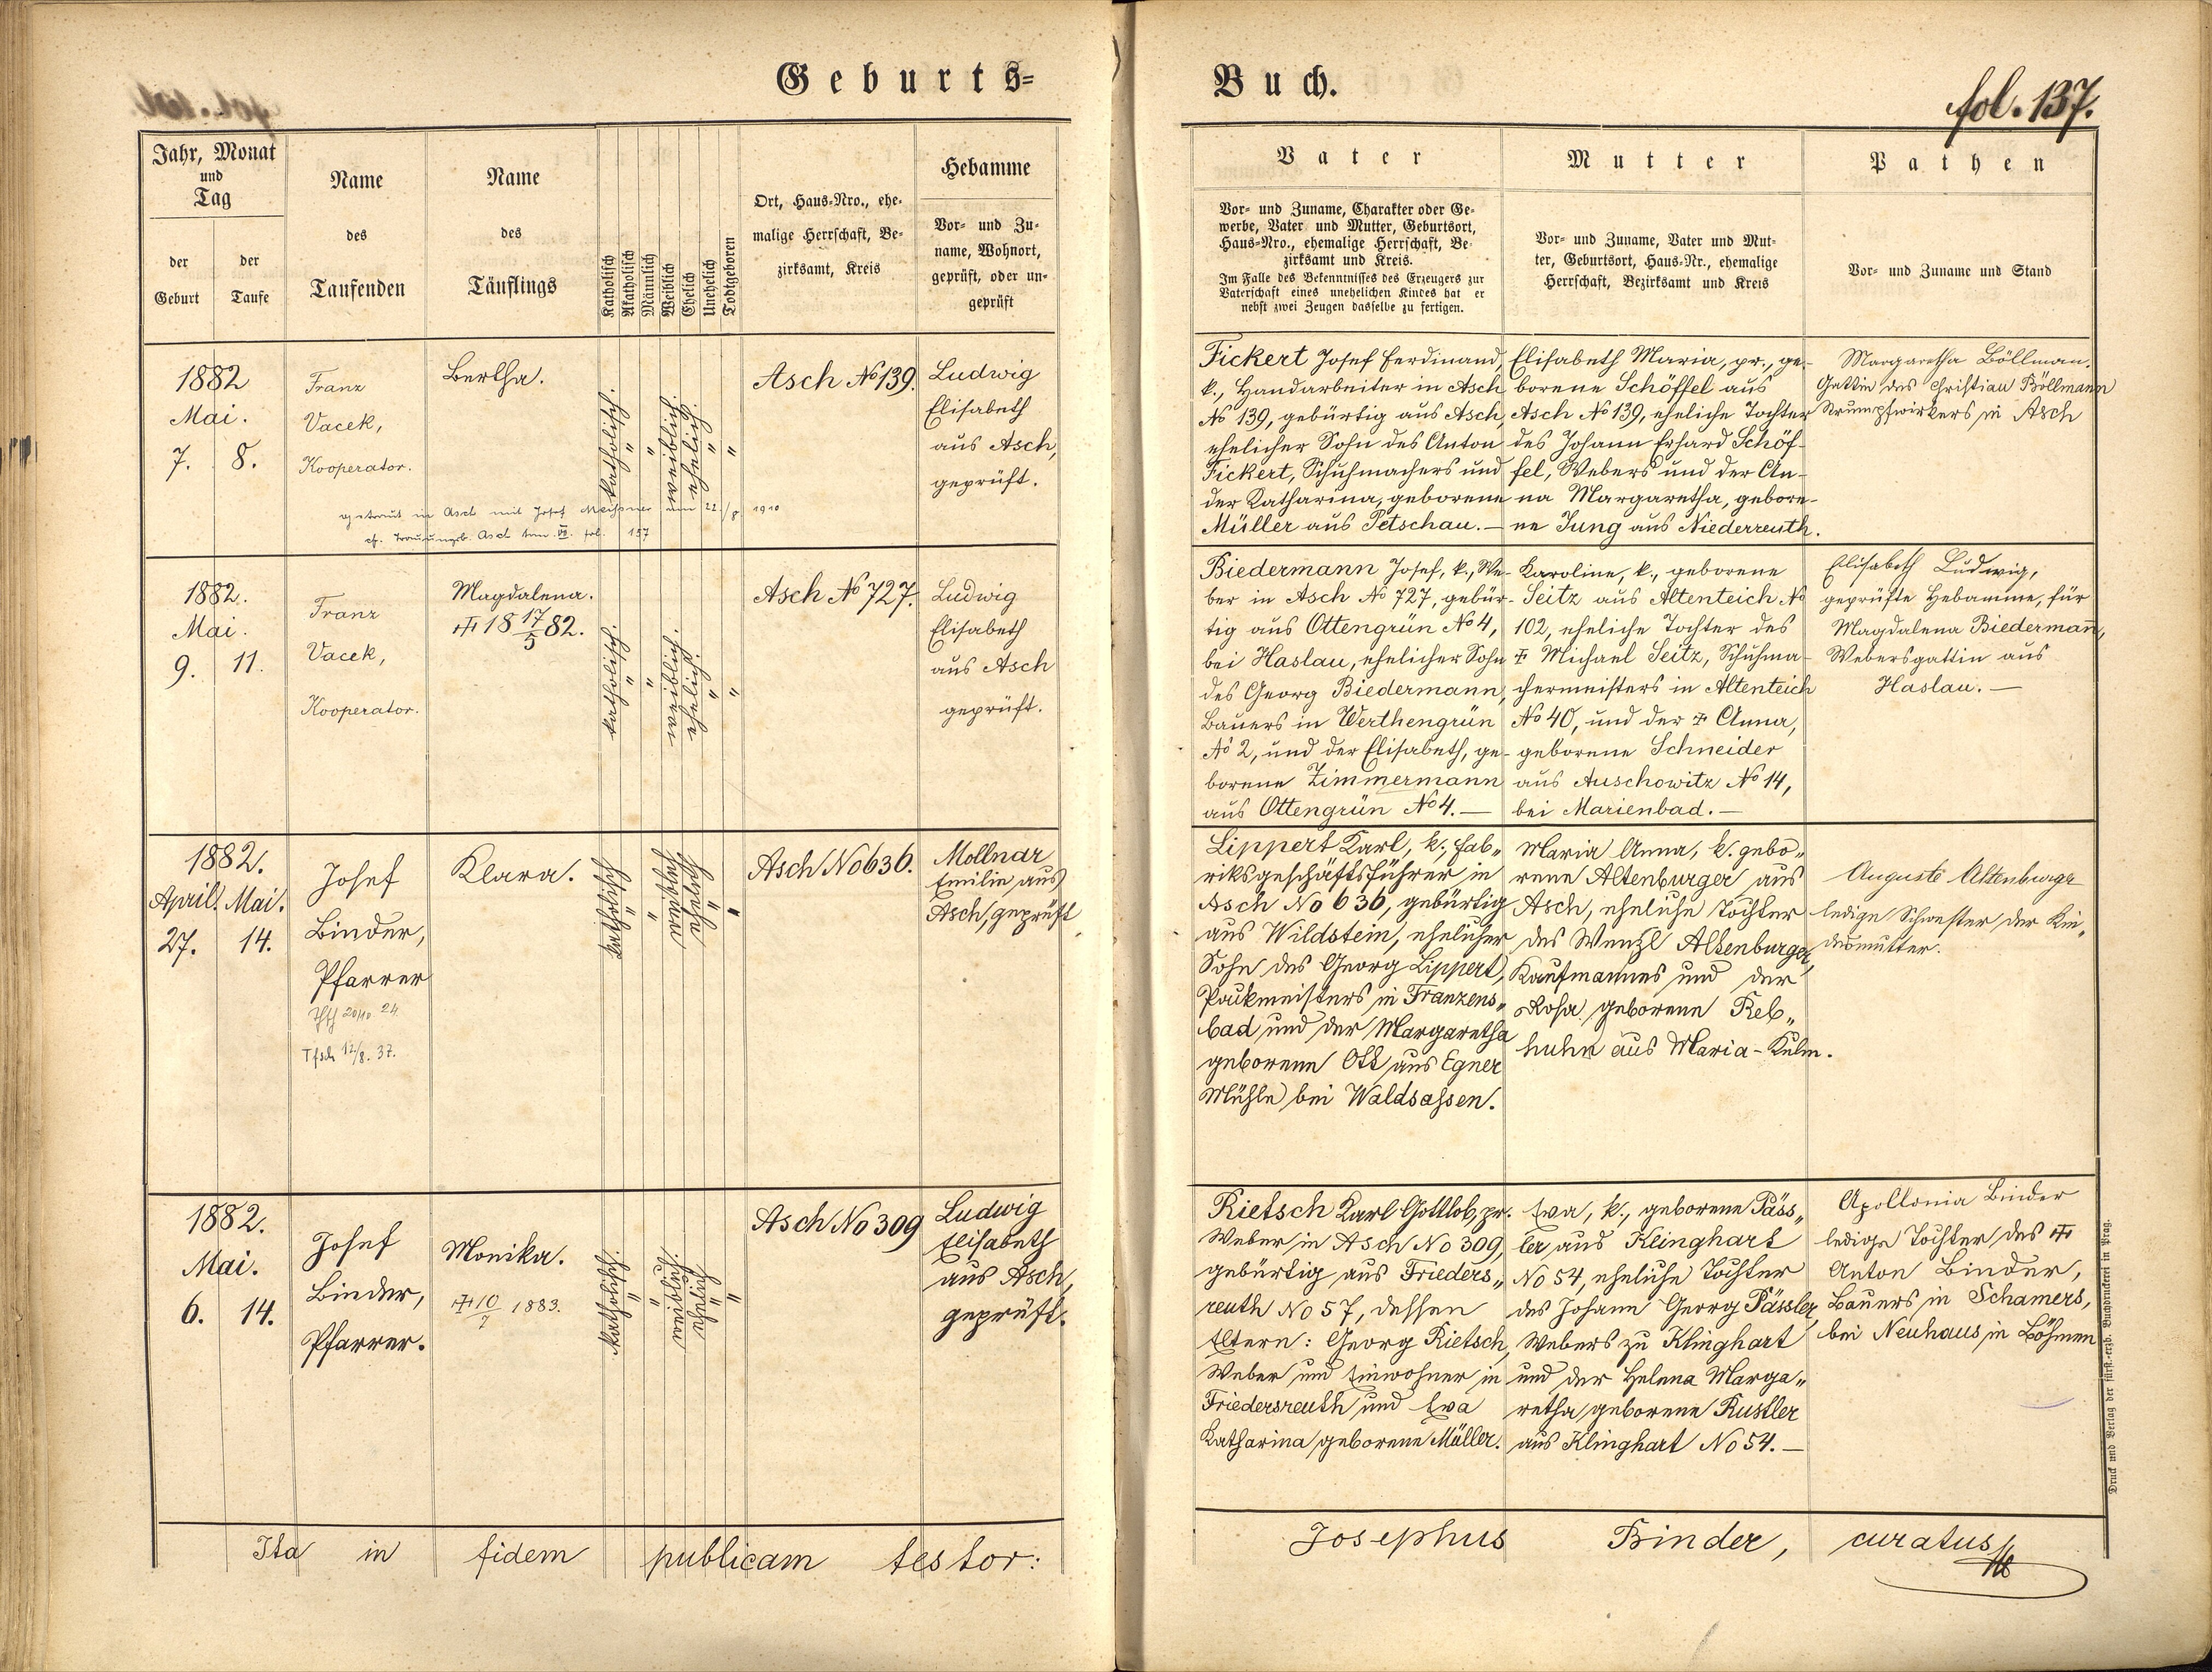 Geburts=
Buch.
fol. 137.
Jahr, Monat
und
Tag
der
Geburt
der
Taufe
Name
des
Taufenden
Name
des
Täuflings
Katholisch
Akatholisch
Männlich
Weiblich
Ehelich
Unehelich
Todtgeboren
Ort, Haus=Nro., ehe=
malige Herrschaft, Be=
zirksamt, Kreis
Hebamme
Vor= und Zu=
name, Wohnort,
geprüft, oder un=
geprüft
Vater
Vor= und Zuname, Charakter oder Ge=
werbe, Vater und Mutter, Geburtsort,
Haus=Nro., ehemalige Herrschaft, Be=
zirksamt und Kreis.
Im Falle des Bekenntnisses des Erzeugers zur
Vaterschaft eines unehelichen Kindes hat er
nebst zwei Zeugen dasselbe zu fertigen.
Mutter
Vor= und Zuname, Vater und Mut=
ter, Geburtsort, Haus=Nr., ehemalige
Herrschaft, Bezirksamt und Kreis
Pathen
Vor= und Zuname und Stand
1882
Mai.
7. 8.
Franz
Vacek,
Kooperator.
Bertha.
katholisch.
"
"
weiblich.
ehelich.
"
"
Asch No 139.
Ludwig
Elisabeth
aus Asch,
geprüft.
getraut in Asch mit Josef Meichsner am 22./8 1910
cf. Trauungsb. Asch tom. VI. fol. 157
Fickert Josef Ferdinand,
k., Handarbeiter in Asch
No 139, gebürtig aus Asch,
ehelicher Sohn des Anton
Fickert, Schuhmachers und
der Katharina, geborene
Müller aus Petschau. —
Elisabeth Maria, pr., ge-
borene Schöffel aus
Asch No 139, eheliche Tochter
des Johann Erhard Schöf-
fel, Webers und der An-
na Margaretha, gebore-
ne Jung aus Niederreuth.
Margaretha Böllman.
Gattin des Christian Böllmann
Strumpfwirkers in Asch
1882.
Mai.
9. 11.
Franz
Vacek,
Kooperator.
Magdalena.
18 17/5 82.
katholisch.
"
"
weiblich.
ehelich.
"
"
Asch No 727.
Ludwig
Elisabeth
aus Asch
geprüft.
Biedermann Josef, k., We-
ber in Asch No 727, gebür-
tig aus Ottengrün No 4,
bei Haslau, ehelicher Sohn
des Georg Biedermann,
Bauers in Werthengrün
No 2, und der Elisabeth, ge-
borene Zimmermann
aus Ottengrün No 4. —
Karoline, k., geborene
Seitz aus Altenteich No
102, eheliche Tochter des
Michael Seitz, Schuhma-
chermeisters in Altenteich
No 40, und der Anna,
geborene Schneider
aus Auschowitz No 14,
bei Marienbad. —
Elisabeth Ludwig,
geprüfte Hebamme, für
Magdalena Biedermañ,
Webersgattin aus
Haslau. —
1882.
April. Mai.
27. 14.
Josef
Binder,
Pfarrer
20/10. 24.
Tfsch 12/8. 37.
Klara.
katholisch
"
"
"
"
Asch No 636.
Mollnar
Emilie aus
Asch, geprüft
Lippert Karl, k., Fab„
riksgeschäftsführer in
Asch No 636, gebürtig
aus Wildstein, ehelicher
Sohn des Georg Lippert,
in Franzens„
bad und der Margaretha
geborene Ott aus Egner
Mühle bei Waldsassen.
Maria Anna, k. gebo„
rene Altenburger aus
Asch, eheliche Tochter
des Wenzl Altenburger,
Kaufmannes und der
Rosa geborene Reb„
huhn aus Maria-Kulm.
Auguste Altenburger
ledige Schwester der Kin„
desmutter.
1882.
Mai.
6. 14.
Josef
Binder,
Pfarrer.
Monika.
10/7 1883.
katholisch.
"
"
weiblich.
ehelich
"
"
Asch No 309
Ludwig
Elisabeth
aus Asch,
geprüft.
Rietsch Karl Gottlob, pr.
Weber in Asch No 309,
gebürtig aus Frieders„
reuth No 57, dessen
Eltern: Georg Rietsch,
Weber und Einwohner in
Friedersreuth und Eva
Katharina geborene Müller.
Eva, k., geborene Päss„
ler aus Klinghart
No 54, eheliche Tochter
des Johann Georg Pässler,
Webers zu Klinghart
und der Helena Marga„
retha geborene Rustler
aus Klinghart No 54. —
Apollonia Binder
ledige Tochter des
Anton Binder,
Bauers in Schamers,
bei Neuhaus in Böhmen
Ita in fidem publicam testor:
Josephus Binder, curatus
Druck und Verlag der fürst.=erzb. Buchdruckerei in Prag.